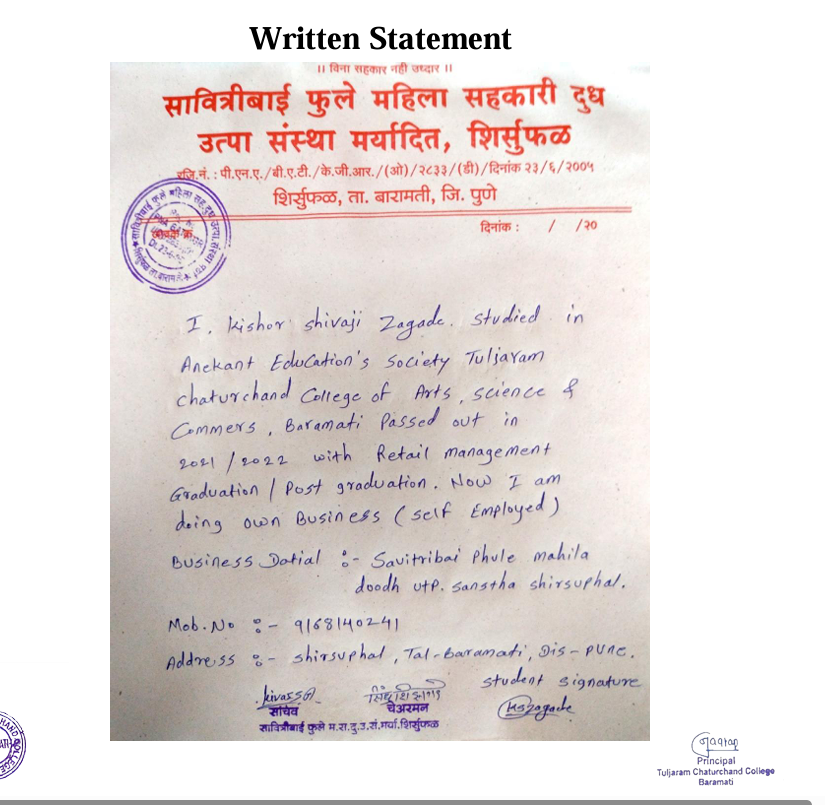 Written Statement
।। विना सहकार नही उध्दार ।।
सावित्रीबाई फुले महिला सहकारी दुध
उत्पा संस्था मर्यादित, शिर्सुफळ
रजि.नं. : पी.एन.ए./बी.ए.टी./के.जी.आर./(ओ)/२८३३/(डी)/दिनांक २३/६/२००५
शिर्सुफळ, ता. बारामती, जि. पुणे
दिनांक : / /२०
I, Kishor Shivaji Zagade. Studied in
Anekant Education's Society Tuljaram
Chaturchand College of Arts, Science &
Commers, Baramati Passed out in
2021/2022 with Retail management
Graduation / Post graduation. Now I am
doing own Business (self Employed)
Business Datial :- Savitribai Phule mahila
doodh utp. Sanstha shirsuphal.
Mob. No :- 9168140241
Address :- Shirsuphal, Tal-Baramati, Dis-Pune.
Student Signature
सचिव चेअरमन
सावित्रीबाई फुले म.स.दु.उ.सं.मर्या.शिर्सुफळ
Kszagade
Principal
Tuljaram Chaturchand College
Baramati